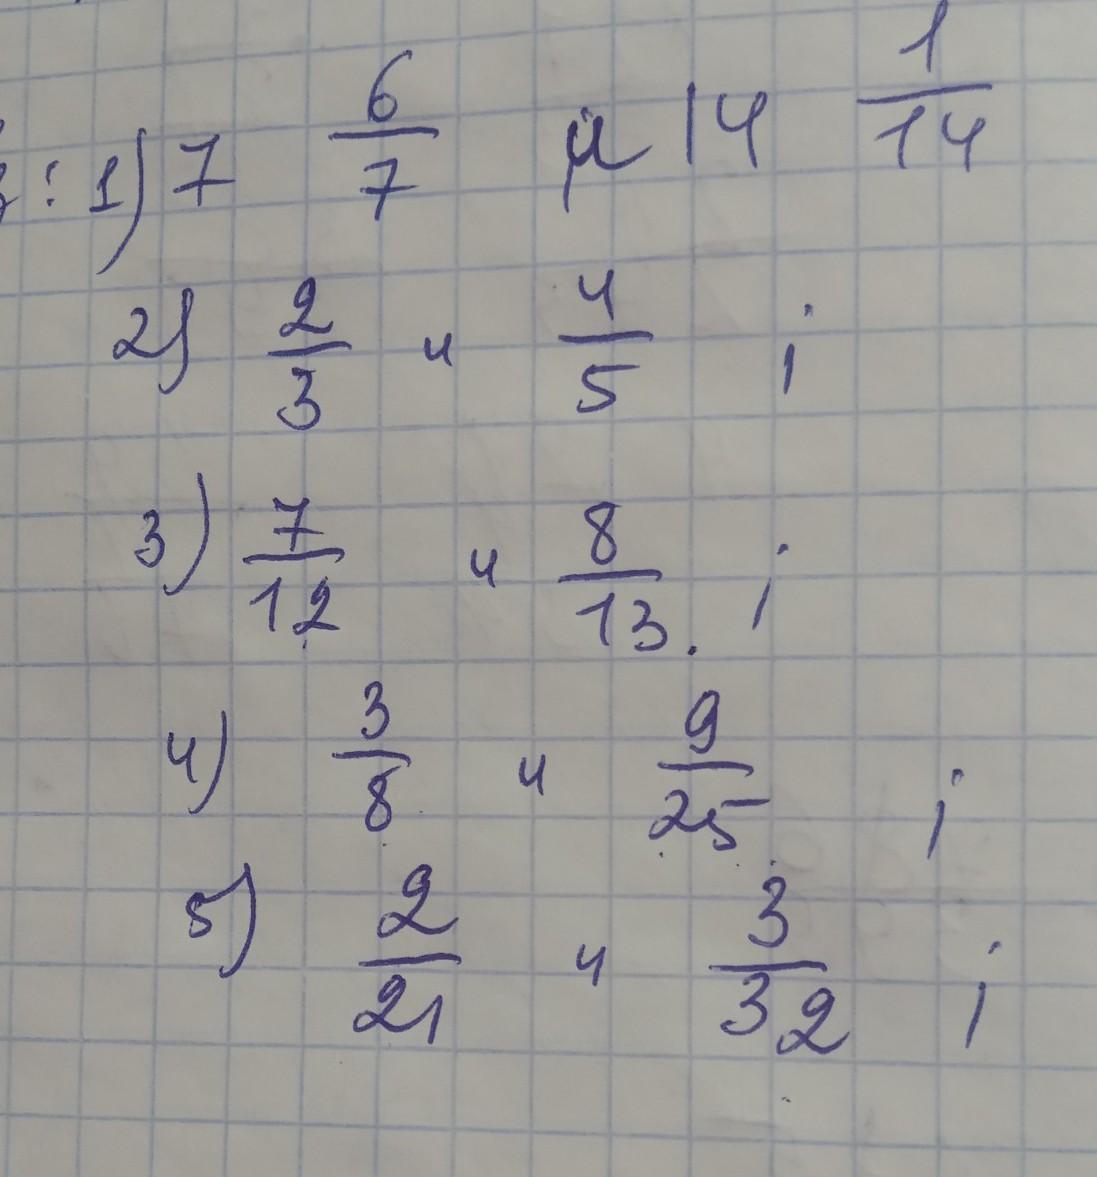 : 1) 7 6/7 и 14 1/14
2) 2/3 и 4/5 ;
3) 7/12 и 8/13. ;
4) 3/8 и 9/25 ;
5) 2/21 и 3/32 ;